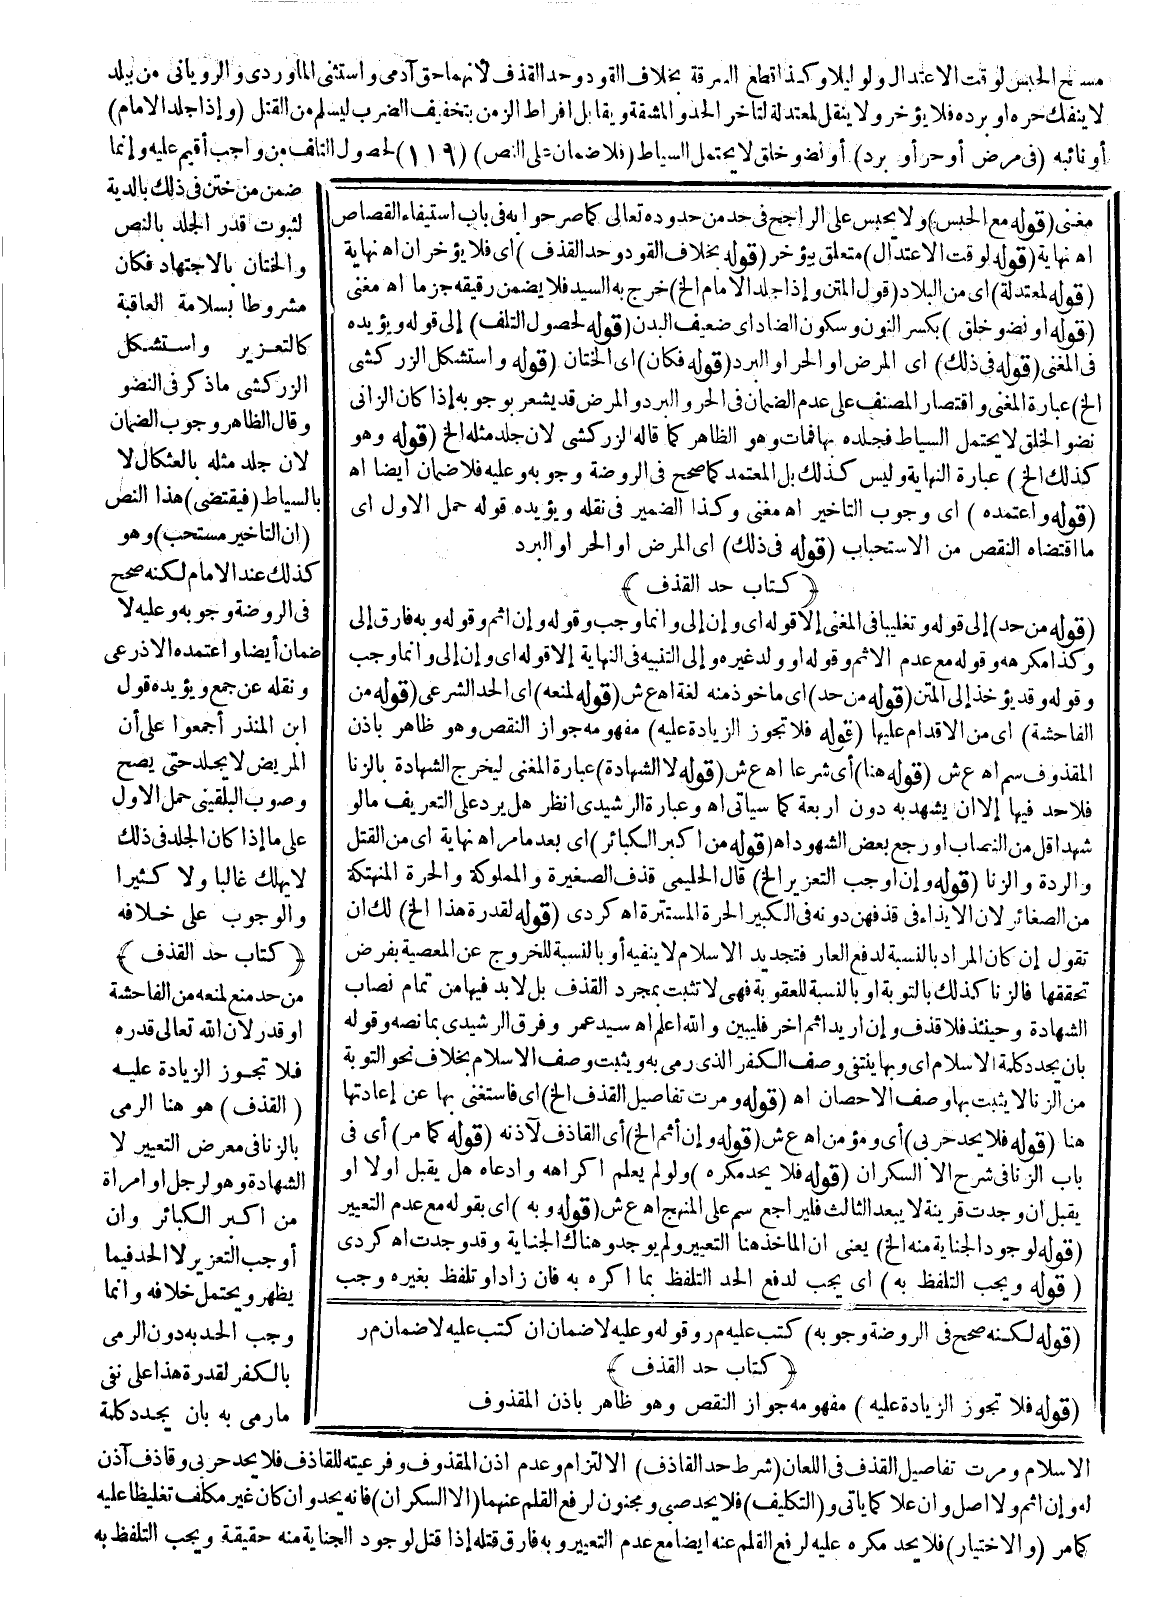 مسح الخبس لوقت الاعتدال ولو ليلا وكذا قطع السرقة بخلاف القود وحد القذف لأنهما حق آدمى واستثنى الماوردى والرويانى من ببلد
لا ينفك حره او برده فلا يؤخر ولا ينقل لمعتدلة لتأخر الحد والمشقة ويقابل افراط الزمن بتخفيف الضرب ليسلم من القتل (وإذا جلد الامام)
أو نائبه (فى مرض أو حر أو برد) أو نضو خلق لا يحتمل السياط (فلا ضمان على النص) (١١٩) لحصول التلف من واجب أقيم عليه وإنما
ضمن من ختن فى ذلك بالدية
لثبوت قدر الجلد بالنص
والختان بالاجتهاد فكان
مشروطا بسلامة العاقبة
كالتعزير واستشكل
الزركشى ما ذكر فى النضو
وقال الظاهر وجوب الضمان
لان جلد مثله بالعثكال لا
بالسياط (فيقتضى) هذا النص
(ان التاخير مستحب) وهو
كذلك عند الامام لكنه صحح
فى الروضة وجوبه وعليه لا
ضمان أيضا واعتمده الاذرعى
ونقله عن جمع ويؤيده قول
ابن المنذر أجمعوا على أن
المريض لا يجلد حتى يصح
وصوب البلقينى حمل الاول
على ما إذا كان الجلد فى ذلك
لا يهلك غالبا ولا كثيرا
والوجوب على خلافه
﴿ كتاب حد القذف ﴾
من حد منع لمنعه من الفاحشة
او قدر لان الله تعالى قدره
فلا تجوز الزيادة عليه
(القذف) هو هنا الرمى
بالزنا فى معرض التعيير لا
الشهادة وهو لرجل او امراة
من اكبر الكبائر وان
أوجب التعزير لا الحد فيما
يظهر ويحتمل خلافه وانما
وجب الحد به دون الرمى
بالكفر لقدرة هذا على نفى
مارمى به بان يجدد كلمة
مغنى (قوله مع الحبس) ولا يحبس على الراجح فى حد من حدوده تعالى كما صرحوا به فى باب استيفاء القصاص
اه نهاية (قوله لوقت الاعتدال) متعلق يؤخر (قوله بخلاف القود وحد القذف) اى فلا يؤخران اه نهاية
(قوله لمعتدلة) اى من البلاد (قول المتن وإذا جلد الامام الخ) خرج به السيد فلا يضمن رقيقه جزما اه مغنى
(قوله او نضو خلق) بكسر النون وسكون الضاد اى ضعيف البدن (قوله لحصول التلف) إلى قوله ويؤيده
فى المغنى (قوله فى ذلك) اى المرض او الحر او البرد (قوله فكان) اى الختان (قوله واستشكل الزركشى
الخ) عبارة المغنى واقتصار المصنف على عدم الضمان فى الحر والبرد والمرض قد يشعر بوجوبه إذا كان الزانى
نضو الخلق لا يحتمل السياط فجلده بها فمات وهو الظاهر كما قاله لزركشى لان جلد مثله الخ (قوله وهو
كذلك الخ) عبارة النهاية وليس كذلك بل المعتمد كما صحح فى الروضة وجوبه وعليه فلا ضمان أيضا اه
(قوله واعتمده) اى وجوب التاخير اه مغنى وكذا الضمير فى نقله ويؤيده قوله حمل الاول اى
ما اقتضاه النقص من الاستحباب (قوله فى ذلك) اى المرض او الحر او البرد
﴿ كتاب حد القذف ﴾
(قوله من حد) إلى قوله وتغليبا فى المغنى إلا قوله اى وإن إلى وانما وجب وقوله وإن اثم وقوله وبه فارق إلى
وكذا مكرهه وقوله مع عدم الاثم وقوله او ولد غيره وإلى التنبيه فى النهاية إلا قوله اى وإن إلى وانما وجب
وقوله وقد يؤخذ إلى المتن (قوله من حد) اى ماخوذ منه لغة اه ع ش (قوله لمنعه) اى الحد الشرعى (قوله من
الفاحشة) اى من الاقدام عليها (قوله فلا تجوز الزيادة عليه) مفهومه جواز النقص وهو ظاهر باذن
المقذوف سم اه ع ش (قوله هنا) أى شرعا اه ع ش (قوله لا الشهادة) عبارة المغنى ليخرج الشهادة بالزنا
فلا حد فيها إلا ان يشهد به دون اربعة كما سياتى اه وعبارة الرشيدى انظر هل يرد على التعريف مالو
شهد اقل من النصاب او رجع بعض الشهود اه (قوله من اكبر الكبائر) اى بعد مامر اه نهاية اى من القتل
والردة والزنا (قوله وإن اوجب التعزير الخ) قال الحليمى قذف الصغيرة والمملوكة والحرة المنهتكة
من الصغائر لان الايذاء فى قذفهن دونه فى الكبير الحرة المستترة اه كردى (قوله لقدرة هذا الخ) لك ان
تقول إن كان المراد بالنسبة لدفع العار فتجديد الاسلام لا ينفيه أو بالنسبة للخروج عن المعصية بفرض
تحققها فالزنا كذلك بالتوبة او بالنسبة للعقوبة فهى لا تثبت بمجرد القذف بل لا بد فيها من تمام نصاب
الشهادة وحينئذ فلا قذف وإن اريد اثم اخر فليبين والله اعلم اه سيد عمر وفرق الرشيدى بما نصه وقوله
بان يجدد كلمة الاسلام اى وبها ينتفى وصف الكفر الذى رمى به ويثبت وصف الاسلام بخلاف نحو التوبة
من الزنا لا يثبت بها وصف الاحصان اه (قوله ومرت تفاصيل القذف الخ) اى فاستغنى بها عن إعادتها
هنا (قوله فلا يحد حربى) أى ومؤمن اه ع ش (قوله وإن أثم الخ) أى القاذف لآذنه (قوله كما مر) أى فى
باب الزنا فى شرح الا السكران (قوله فلا يحد مكره) ولو لم يعلم اكراهه وادعاه هل يقبل اولا او
يقبل ان وجدت قرينة لا يبعد الثالث فليراجع سم على المنهج اه ع ش (قوله وبه) اى بقوله مع عدم التعيير
(قوله لوجود الجناية منه الخ) يعنى ان الماخذ هنا التعيير ولم يوجد وهناك الجناية وقد وجدت اه كردى
(قوله ويجب التلفظ به) اى يجب لدفع الحد التلفظ بما اكره به فان زاد او تلفظ بغيره وجب
(قوله لكنه صحح فى الروضة وجوبه) كتب عليه م ر وقوله وعليه لا ضمان ان كتب عليه لا ضمان م ر
﴿ كتاب حد القذف ﴾
(قوله فلا تجوز الزيادة عليه) مفهومه جواز النقص وهو ظاهر باذن المقذوف
الاسلام ومرت تفاصيل القذف فى اللعان (شرط حد القاذف) الالتزام وعدم اذن المقذوف وفرعيته للقاذف فلا يحد حربى وقاذف آذن
له وإن اثم ولا اصل وان علا كما ياتى و(التكليف) فلا يحد صبى ومجنون لرفع القلم عنهما (الا السكران) فانه يحد وان كان غير مكلف تغليظا عليه
كما مر (والاختيار) فلا يحد مكره عليه لرفع القلم عنه ايضا مع عدم التعيير وبه فارق قتله إذا قتل لوجود الجناية منه حقيقة ويجب التلفظ به